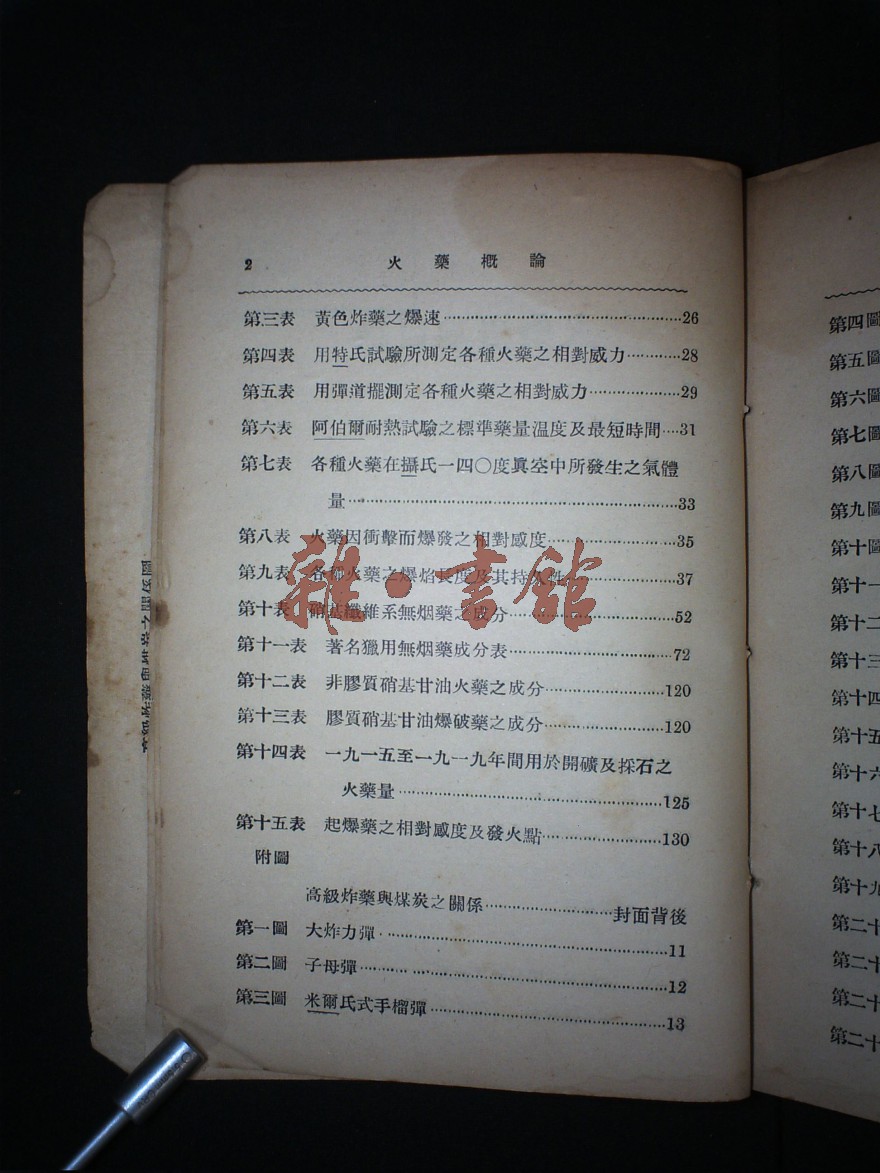 2 火藥概論
第三表 黃色炸藥之爆速……26
第四表 用特氏試驗所測定各種火藥之相對威力……28
第五表 用彈道擺測定各種火藥之相對威力……29
第六表 阿伯爾耐熱試驗之標準藥量溫度及最短時間……31
第七表 各種火藥在攝氏一四〇度眞空中所發生之氣體
量……33
第八表 火藥因衝擊而爆發之相對感度……35
第九表 各種火藥之爆焰長度及其持久性……37
第十表 硝基纖維系無烟藥之成分……52
第十一表 著名獵用無烟藥成分表……72
第十二表 非膠質硝基甘油火藥之成分……120
第十三表 膠質硝基甘油爆破藥之成分……120
第十四表 一九一五至一九一九年間用於開礦及採石之
火藥量……125
第十五表 起爆藥之相對感度及發火點……130
附圖
高級炸藥與煤炭之關係……封面背後
第一圖 大炸力彈……11
第二圖 子母彈……12
第三圖 米爾氏式手榴彈……13
雜·書館
第四圖
第五圖
第六圖
第七圖
第八圖
第九圖
第十圖
第十一
第十二
第十三
第十四
第十五
第十六
第十七
第十八
第十九
第二十
第二十
第二十
第二十